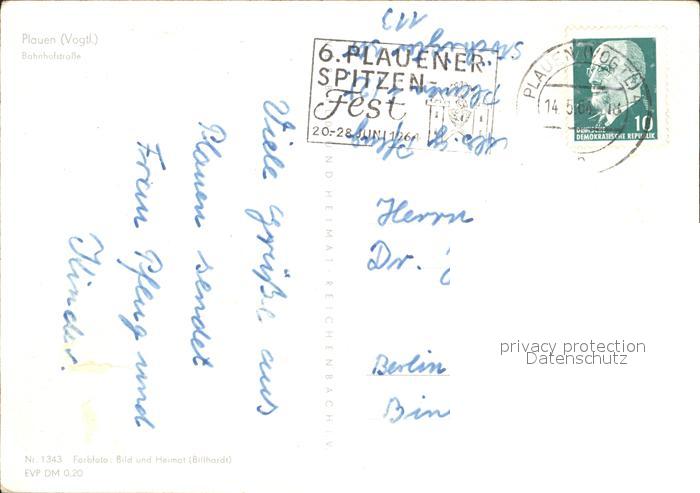 Plauen (Vogtl.)
Bahnhofstraße
6. PLAUENER
SPITZEN-
Fest
20.-28. JUNI 1964
PLAUEN (VOGTL)
14.5.64
10
DEUTSCHE
DEMOKRATISCHE REPUBLIK
Abs. g. Pflug
Plauen
113
Viele Grüße aus
Plauen sendet
Frau Pflug und
Kinder.
UND HEIMAT · REICHENBACH i. V.
Herrn
Dr.
Berlin
Bin
privacy protection
Datenschutz
Nr. 1343 Farbfoto: Bild und Heimat (Billhardt)
EVP DM 0,20